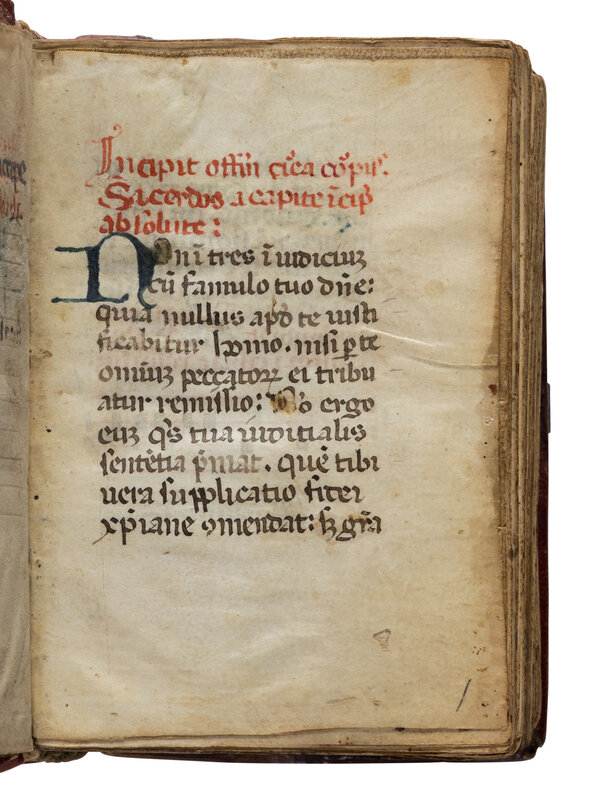 Incipit offin̄ circa cōpus.
Sacerdos a capite īcip̄
absolute:
Non ī tres ī iudiciuꝫ
cū famulo tuo dn̄e:
quia nullus apđ te iusti
ficabitur homo. nisi ꝑ te
omniuꝫ peccatoꝝ ei tribu
atur remissio: Nō ergo
euꝫ q̄s tua iudicialis
sentētia p̄mat. quē tibi
uera supplicatio fidei
xp̄iane ɔmendat: sꝫ gr̄a